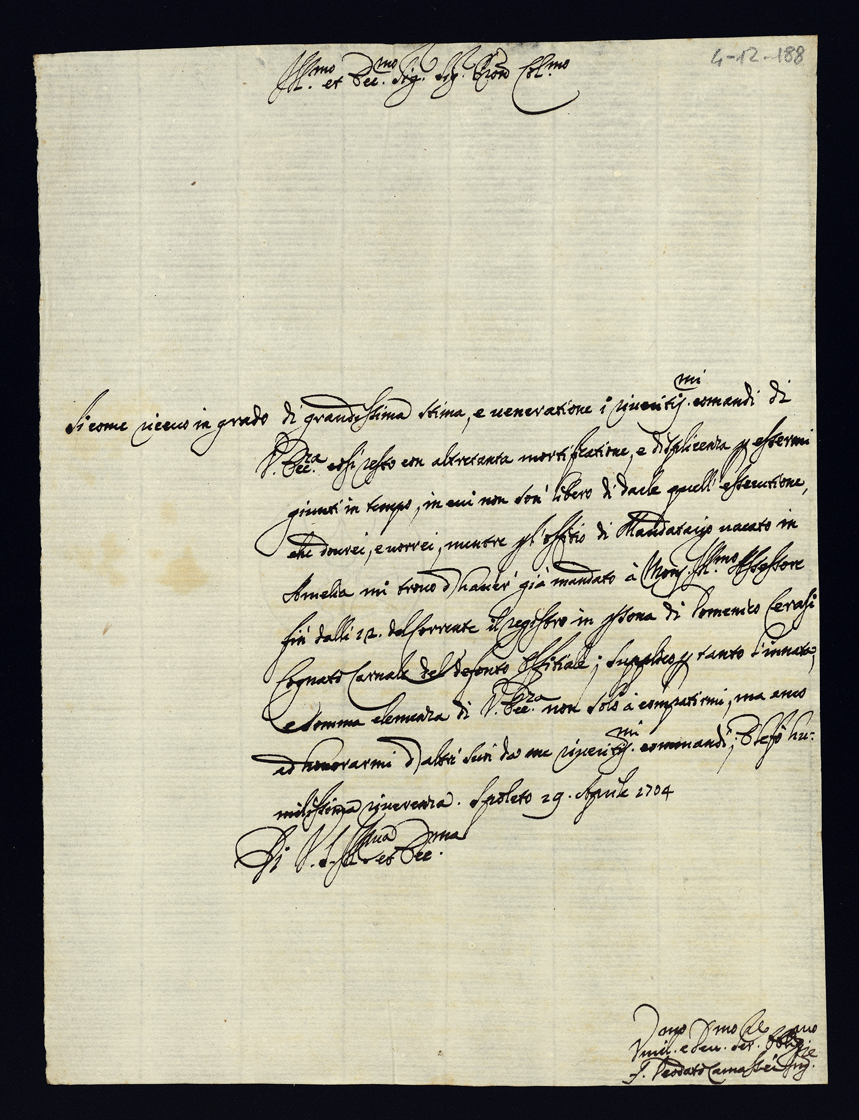 4-12-188
Ill.mo et Ecc.mo Sig. Sig. Pron Col.mo
Si come riceuo in grado di grandissima stima, e ueneratione i riueritis.mi comandi di
V. Ecc.za cosi resto con altretanta mortificatione, e displicenza p essermi
giunti in tempo, in cui non son' libero di darle quell' essecutione,
che dourei, e uorrei, mentre pl' offitio di Mandatario uacato in
Amelia mi trouo d'hauer' già mandato à Mons. Ill.mo Assessore
fin' dalli 12. del Corrente il registro in psona di Domenico Cerasi
Cognato Carnale del defonto Offitiale; Supplico p tanto l'innata,
e somma clemenza di V. Ecc.za non solo à compatirmi, ma anco
ad honorarmi d'altri suoi da me riueritis.mi commandi; E le fò hu-
milissima riuerenza. Spoleto 29. Aprile 1704
Di V. S. Ill.ma et Ecc.ma
Vmil.mo e Deu.mo Ser. Oblig.mo
F. Teodato Camassei